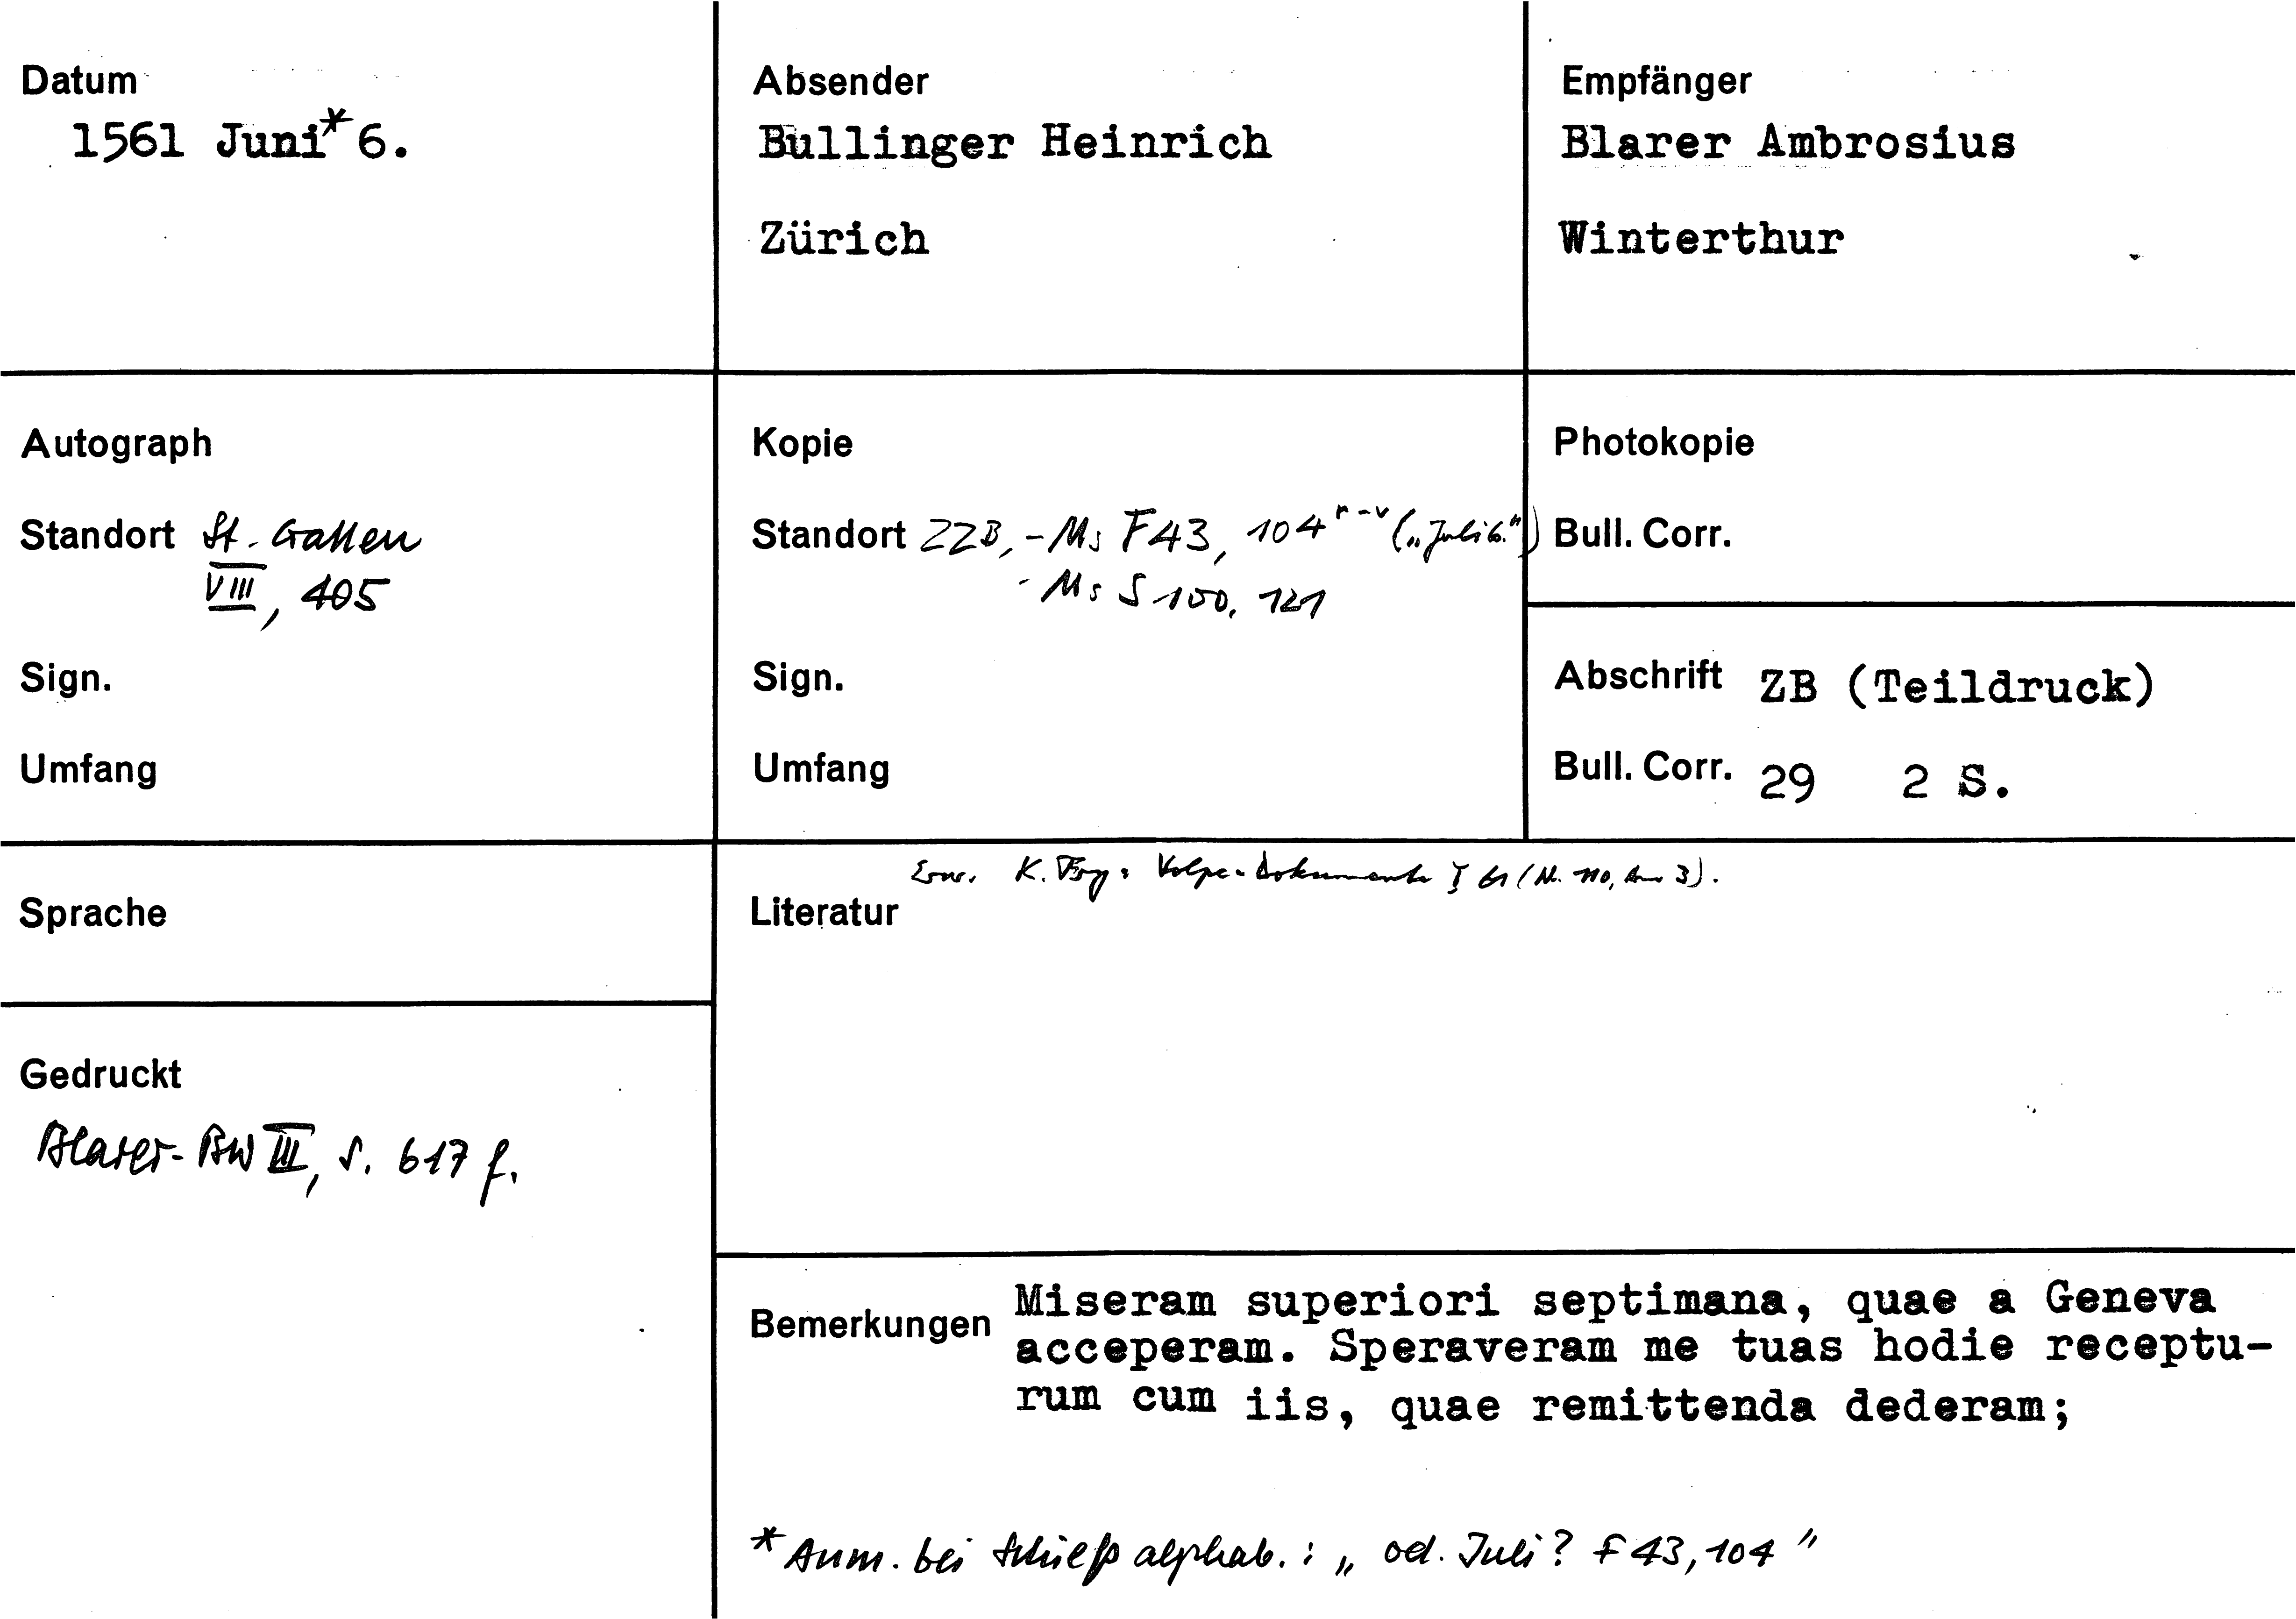 Datum
1561 Juni* 6.
Absender
Bullinger Heinrich
Zürich
Empfänger
Blarer Ambrosius
Winterthur
Autograph
Standort St. Gallen
VIII, 405
Sign.
Umfang
Kopie
Standort ZZB, - Ms F 43, 104 r-v („Juli 6.")
- Ms S 100, 121
Sign.
Umfang
Photokopie
Bull. Corr.
Abschrift ZB (Teildruck)
Bull. Corr. 29 2 S.
Sprache
Gedruckt
Blarer-BW III, S. 617 f.
K. Fry: Volpe-Dokumente I 61 (Nr. 110, Anm 3).
Literatur
Bemerkungen Miseram superiori septimana, quae a Geneva
acceperam. Speraveram me tuas hodie receptu-
rum cum iis, quae remittenda dederam;
* Anm. bei Schieß alphab. : „ od. Juli? F 43, 104 "